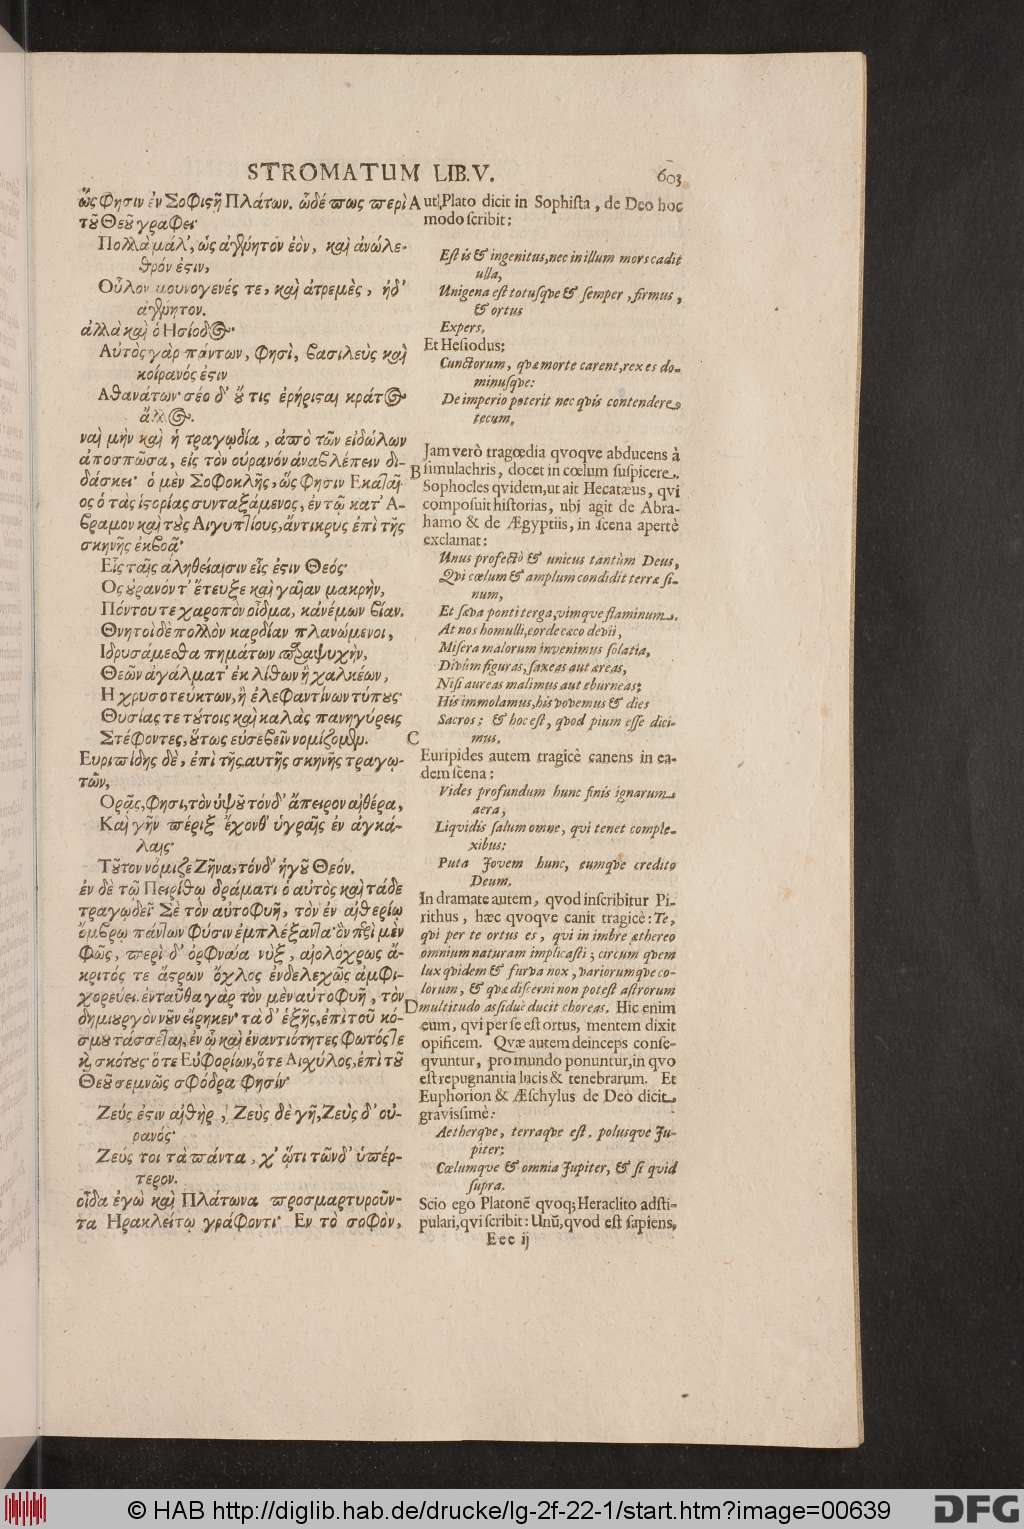 STROMATUM LIB. V. 603
ὥς φησιν ἐν Σοφιςῇ Πλάτων. ὧδέ πως περὶ
τȣ͂ Θεȣ͂ γράφει·
Πολλὰ μάλ', ὡς ἀγένητον ἐὸν, καὶ ἀνώλε-
θρόν ἐςιν,
Οὖλον μουνογενές τε, καὶ ἀτρεμὲς, ἠδ'
ἀγένητον.
ἀλλὰ καὶ ὁ Ησίοδος·
Αὐτὸς γὰρ πάντων, φησὶ, βασιλεὺς καὶ
κοίρανός ἐςιν
Αθανάτων· σέο δ' ȣ̓́ τις ἐρήριςαι κράτος
ἄλλος.
ναὶ μὴν καὶ ἡ τραγῳδία, ἀπὸ τῶν εἰδώλων
ἀποσπῶσα, εἰς τὸν οὐρανὸν ἀναβλέπειν δι-
δάσκει· ὁ μὲν Σοφοκλῆς, ὥς φησιν Εκαταῖ-
ος ὁ τὰς ἱςορίας συνταξάμενος, ἐν τῷ κατ' Α-
βραμον καὶ τȣ̀ς Αἰγυπτίους, ἄντικρυς ἐπὶ τῆς
σκηνῆς ἐκβοᾷ·
Εἷς ταῖς ἀληθείαισιν εἷς ἐςιν Θεός·
Ος ȣ̓ρανόν τ' ἔτευξε καὶ γαῖαν μακρὴν,
Πόντου τε χαροπὸν οἶδμα, κἀνέμων βίαν.
Θνητοὶ δὲ πολλὸν καρδίαν πλανώμενοι,
Ιδρυσάμεσθα πημάτων παραψυχὴν,
Θεῶν ἀγάλματ' ἐκ λίθων ἢ χαλκέων,
Η χρυσοτεύκτων, ἢ ἐλεφαντίνων τύπȣς·
Θυσίας τε τȣ́τοις καὶ καλὰς πανηγύρεις
Στέφοντες, ȣ̔́τως εὐσεβεῖν νομίζομεν.
Ευριπίδης δὲ, ἐπὶ τῆς αυτῆς σκηνῆς τραγῳ-
τῶν,
Ορᾷς, φησι, τὸν ὑψȣ͂ τόνδ' ἄπειρον αἰθέρα,
Καὶ γῆν πέριξ ἔχονθ' ὑγραῖς ἐν ἀγκά-
λαις·
Τȣ͂τον νόμιζε Ζῆνα, τόνδ' ἡγȣ͂ Θεόν.
ἐν δὲ τῷ Πειρίθῳ δράματι ὁ αὐτὸς καὶ τάδε
τραγῳδεῖ· Σὲ τὸν αὐτοφυῆ, τὸν ἐν αἰθερίῳ
ὄμβρῳ πάντων φύσιν ἐμπλέξαντα· ὃν πέρι μὲν
φῶς, περὶ δ' ὀρφναία νὺξ, αἰολόχρως ἄ-
κριτός τε ἄςρων ὄχλος ἐνδελεχῶς ἀμφι-
χορεύει. ἐνταῦθα γὰρ τὸν μὲν αὐτοφυῆ, τὸν
δημιουργὸν νοῦν εἴρηκεν· τὰ δ' ἑξῆς, ἐπὶ τοῦ κό-
σμȣ τάσσεται, ἐν ᾧ καὶ ἐναντιότητες φωτός τε
κ σκότȣς· ὅ τε Εὐφορίων, ὅ τε Αἰσχύλος, ἐπὶ τȣ͂
Θεȣ͂ σεμνῶς σφόδρα φησίν·
Ζεύς ἐςιν αἰθὴρ, Ζεὺς δὲ γῆ, Ζεὺς δ' οὐ-
ρανός·
Ζεύς τοι τὰ πάντα, χ' ὥτι τῶνδ' ὑπέρ-
τερον.
οἶδα ἐγὼ καὶ Πλάτωνα προσμαρτυροῦν-
τα Ηρακλείτῳ γράφοντι· Εν τὸ σοφὸν,
A
B
C
D
uti Plato dicit in Sophista, de Deo hoc
modo scribit:
Est is & ingenitus, nec in illum mors cadit
ulla,
Unigena est totusqve & semper, firmus,
& ortus
Expers.
Et Hesiodus:
Cunctorum, qvæ morte carent, rex es do-
minusqve:
De imperio poterit nec qvis contendere
tecum.
Jam verò tragœdia qvoqve abducens à
simulachris, docet in cœlum suspicere.
Sophocles qvidem, ut ait Hecatæus, qvi
composuit historias, ubi agit de Abra-
hamo & de Ægyptiis, in scena apertè
exclamat:
Unus profectò & unicus tantùm Deus,
Qvi cœlum & amplum condidit terræ si-
num,
Et sæva ponti terga, vimqve flaminum.
At nos homulli, corde cæco devii,
Misera malorum invenimus solatia,
Divûm figuras, saxeas aut æreas,
Nisi aureas malimus aut eburneas;
His immolamus, his vovemus & dies
Sacros; & hoc est, qvod pium esse dici-
mus.
Euripides autem tragicè canens in ea-
dem scena:
Vides profundum hunc finis ignarum
aera,
Liqvidis salum omne, qvi tenet comple-
xibus:
Puta Jovem hunc, eumqve credito
Deum.
In dramate autem, qvod inscribitur Pi-
rithus, hæc qvoqve canit tragicè: Te,
qvi per te ortus es, qvi in imbre æthereo
omnium naturam implicasti; circum qvem
lux qvidem & furva nox, variorumqve co-
lorum, & qvæ discerni non potest astrorum
multitudo assiduè ducit choreas. Hic enim
eum, qvi per se est ortus, mentem dixit
opificem. Qvæ autem deinceps conse-
qvuntur, pro mundo ponuntur, in qvo
est repugnantia lucis & tenebrarum. Et
Euphorion & Æschylus de Deo dicit
gravissimè:
Aetherqve, terraqve est, polusqve Ju-
piter;
Cœlumqve & omnia Jupiter, & si qvid
supra.
Scio ego Platonẽ qvoq; Heraclito adsti-
pulari, qvi scribit: Unũ, qvod est sapiens,
Eee ij
© HAB http://diglib.hab.de/drucke/lg-2f-22-1/start.htm?image=00639
DFG